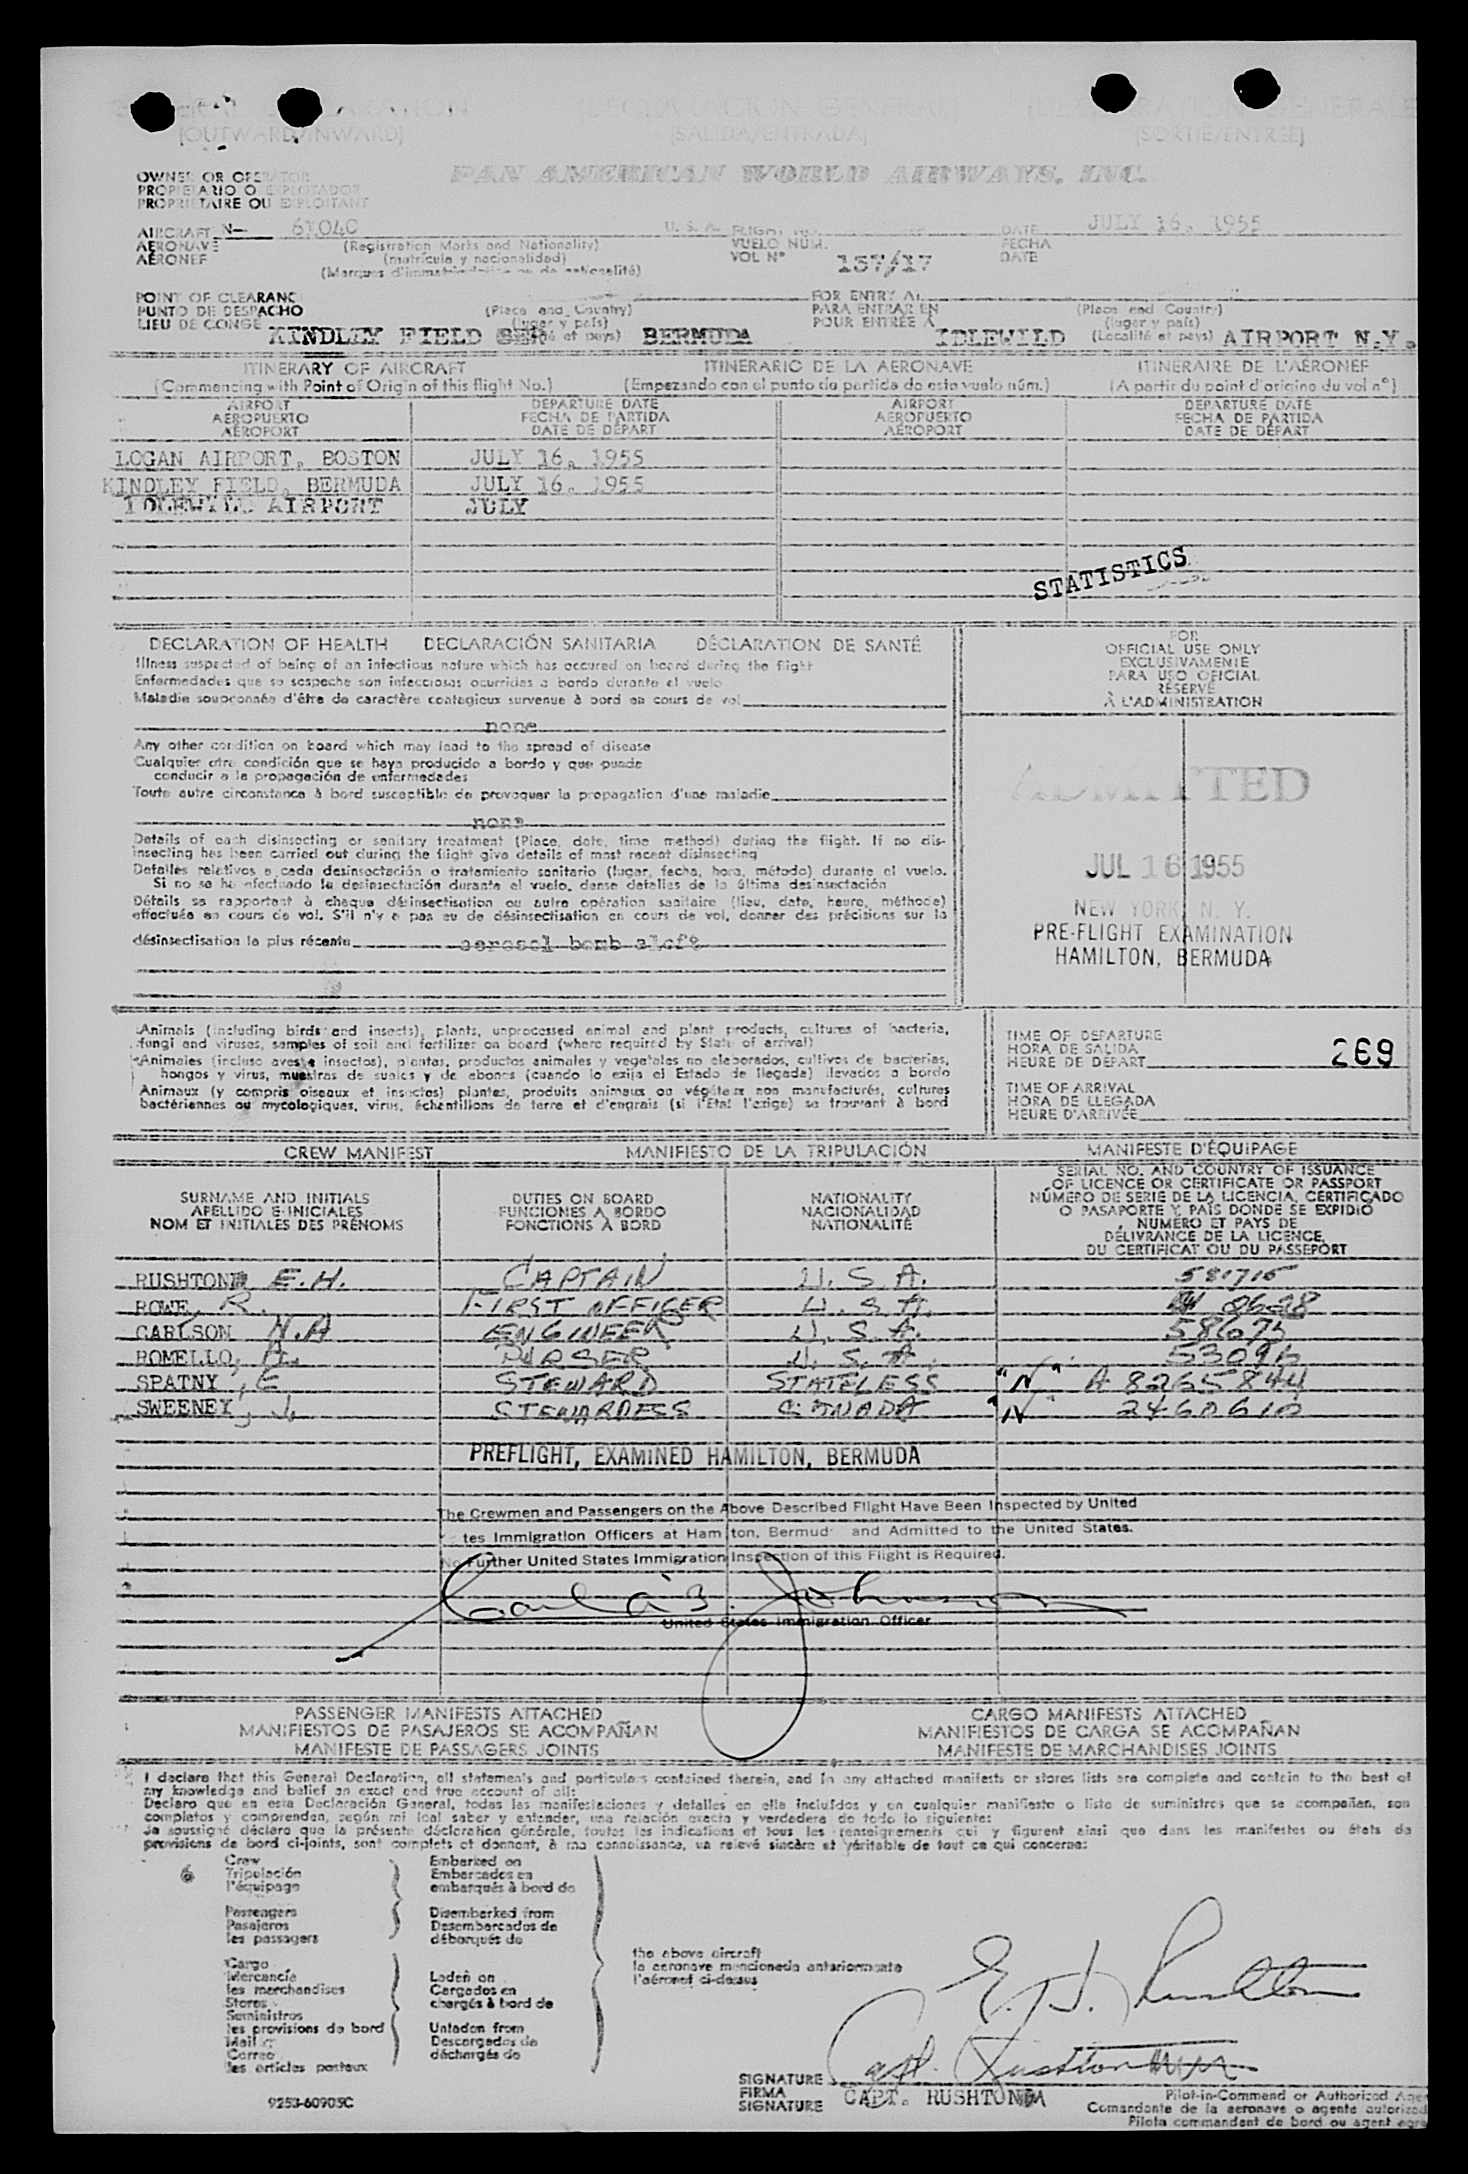 GENERAL DECLARATION
(OUTWARD/INWARD)
(SALIDA/ENTRADA)
(SORTIE/ENTRÉE)
OWNER OR OPERATOR
PROPIETARIO O EXPLOTADOR
PROPRIETAIRE OU EXPLOITANT
PAN AMERICAN WORLD AIRWAYS, INC.
AIRCRAFT N-
AERONAVE
AÉRONEF
U. S. A.
(Registration Marks and Nationality)
(matrícula y nacionalidad)
FLIGHT NO.
VUELO NÚM.
VOL Nº 157/17
DATE JULY 16, 1955
FECHA
DATE
POINT OF CLEARANCE
PUNTO DE DESPACHO
LIEU DE CONGE KINDLEY FIELD
(Place and Country)
(lugar y país)
BERMUDA
FOR ENTRY AT
PARA ENTRAR EN
POUR ENTRÉE A IDLEWILD
(Place and Country)
(lugar y país)
(Localité et pays) AIRPORT N.Y.
ITINERARY OF AIRCRAFT ITINERARIO DE LA AERONAVE ITINÉRAIRE DE L'AÉRONEF
(Commencing with Point of Origin of this flight No.) (Empezando con el punto de partida de este vuelo núm.) (A partir du point d'origine du vol nº)
AIRPORT
AEROPUERTO
AÉROPORT
DEPARTURE DATE
FECHA DE PARTIDA
DATE DE DÉPART
AIRPORT
AEROPUERTO
AÉROPORT
DEPARTURE DATE
FECHA DE PARTIDA
DATE DE DÉPART
LOGAN AIRPORT, BOSTON JULY 16, 1955
KINDLEY FIELD, BERMUDA JULY 16, 1955
IDLEWILD AIRPORT JULY
STATISTICS
DECLARATION OF HEALTH DECLARACIÓN SANITARIA DÉCLARATION DE SANTÉ
Illness suspected of being of an infectious nature which has occured on board during the flight
Enfermedades que se sospeche son infecciosas ocurridas a bordo durante el vuelo
Maladie soupçonnée d'être de caractère contagieux survenue à bord en cours de vol
none
Any other condition on board which may lead to the spread of disease
Cualquier otra condición que se haya producido a bordo y que puede
conducir a la propagación de enfermedades
Toute autre circonstance à bord susceptible de provoquer la propagation d'une maladie
none
Details of each disinsecting or sanitary treatment (Place, date, time method) during the flight. If no dis-
insecting has been carried out during the flight give details of most recent disinsecting
Detalles relativos a cada desinsectación o tratamiento sanitario (lugar, fecha, hora, método) durante el vuelo.
Si no se ha efectuado la desinsectación durante el vuelo, dense detalles de la última desinsectación
Détails se rapportant à chaque désinsectisation ou autre opération sanitaire (lieu, date, heure, méthode)
effectuée en cours de vol. S'il n'y a pas eu de désinsectisation en cours de vol, donner des précisions sur la
désinsectisation la plus récente aerosol bomb aloft
FOR
OFFICIAL USE ONLY
EXCLUSIVAMENTE
PARA USO OFICIAL
RÉSERVÉ
À L'ADMINISTRATION
ADMITTED
JUL 16 1955
NEW YORK, N. Y.
PRE-FLIGHT EXAMINATION
HAMILTON, BERMUDA
Animals (including birds and insects), plants, unprocessed animal and plant products, cultures of bacteria,
fungi and viruses, samples of soil and fertilizer on board (where required by State of arrival)
Animales (incluso aves e insectos), plantas, productos animales y vegetales no elaborados, cultivos de bacterias,
hongos y virus, muestras de suelos y de abonos (cuando lo exija el Estado de llegada) llevados a bordo
Animaux (y compris oiseaux et insectes) plantes, produits animaux ou végétaux non manufacturés, cultures
bactériennes ou mycologiques, virus, échantillons de terre et d'engrais (si l'Etat l'exige) se trouvant à bord
TIME OF DEPARTURE
HORA DE SALIDA
HEURE DE DÉPART 269
TIME OF ARRIVAL
HORA DE LLEGADA
HEURE D'ARRIVÉE
CREW MANIFEST MANIFIESTO DE LA TRIPULACIÓN MANIFESTE D'ÉQUIPAGE
SURNAME AND INITIALS
APELLIDO E INICIALES
NOM ET INITIALES DES PRÉNOMS
DUTIES ON BOARD
FUNCIONES A BORDO
FONCTIONS À BORD
NATIONALITY
NACIONALIDAD
NATIONALITÉ
SERIAL NO. AND COUNTRY OF ISSUANCE
OF LICENCE OR CERTIFICATE OR PASSPORT
NÚMERO DE SERIE DE LA LICENCIA, CERTIFICADO
O PASAPORTE Y PAÍS DONDE SE EXPIDIÓ
NUMERO ET PAYS DE
DÉLIVRANCE DE LA LICENCE,
DU CERTIFICAT OU DU PASSEPORT
RUSHTON E.H. CAPTAIN U.S.A. 581715
ROWE, R. FIRST OFFICER U.S.A.
CARLSON N.A ENGINEER U.S.A.
ROMELLO, A. PURSER U.S.A.
SPATNY, E STEWARD STATELESS "N" A 8265844
SWEENEY, J. STEWARDESS CANADA "N" 2460610
PREFLIGHT, EXAMINED HAMILTON, BERMUDA
The Crewmen and Passengers on the Above Described Flight Have Been Inspected by United
tes Immigration Officers at Hamilton, Bermuda and Admitted to the United States.
No Further United States Immigration Inspection of this Flight is Required.
United States Immigration Officer
PASSENGER MANIFESTS ATTACHED
MANIFIESTOS DE PASAJEROS SE ACOMPAÑAN
MANIFESTE DE PASSAGERS JOINTS
CARGO MANIFESTS ATTACHED
MANIFIESTOS DE CARGA SE ACOMPAÑAN
MANIFESTE DE MARCHANDISES JOINTS
I declare that this General Declaration, all statements and particulars contained therein, and in any attached manifests or stores lists are complete and contain to the best of
my knowledge and belief an exact and true account of all:
Declaro que en esta Declaración General, todas las manifestaciones y detalles en ella incluídos y en cualquier manifiesto o lista de suministros que se acompañan, son
completos y comprenden, según mi leal saber y entender, una relación exacta y verdadera de todo lo siguiente:
Je soussigné déclare que la présente déclaration générale, toutes les indications et tous les renseignements qui y figurent ainsi que dans les manifestes ou états de
provisions de bord ci-joints, sont complets et donnent, à ma connaissance, un relevé sincère et véritable de tout ce qui concerne:
6
Crew
Tripulación
l'équipage
Embarked on
Embarcados en
embarqués à bord de
Passengers
Pasajeros
les passagers
Disembarked from
Desembarcados de
débarqués de
Cargo
Mercancía
les marchandises
Stores
Suministros
les provisions de bord
Mail
Correo
les articles postaux
Laden on
Cargados en
chargés à bord de
Unladen from
Descargados de
déchargés de
the above aircraft
la aeronave mencionada anteriormente
l'aéronef ci-dessus
E. H. Rushton
Capt. Rushton
SIGNATURE
FIRMA
SIGNATURE
CAPT. RUSHTON
Pilot-in-Command or Authorized
Comandante de la aeronave o agente
Pilote commandant de bord ou agent
9253-60905C